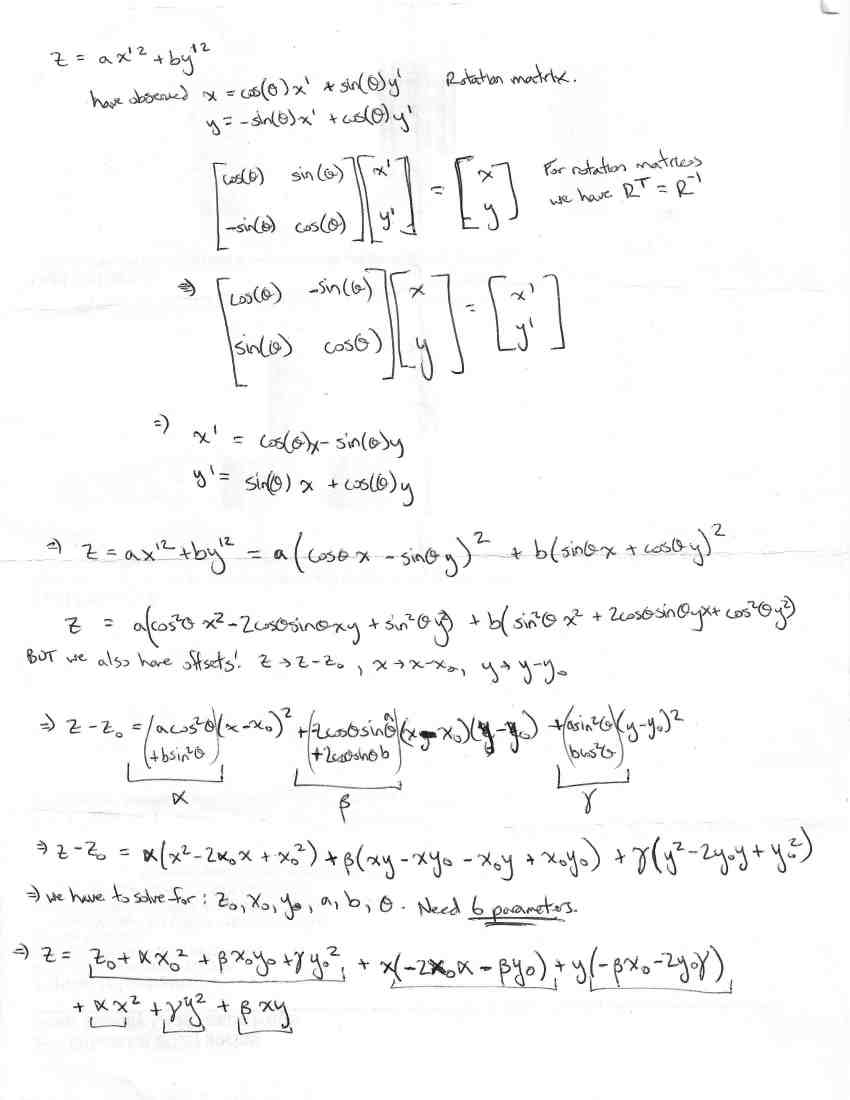 z = ax'² + by'²
have observed x = cos(θ)x' + sin(θ)y' Rotation matrix.
y = -sin(θ)x' + cos(θ)y'
[cos(θ) sin(θ)] [x'] = [x] For rotation matrices
[-sin(θ) cos(θ)] [y'] [y] we have Rᵀ = R⁻¹
⇒ [cos(θ) -sin(θ)] [x] = [x']
[sin(θ) cosθ)] [y] [y']
⇒ x' = cos(θ)x - sin(θ)y
y' = sin(θ) x + cos(θ)y
⇒ z = ax'² + by'² = a(cosθ x - sinθ y)² + b(sinθx + cosθy)²
z = a(cos²θ x² - 2cosθsinθxy + sin²θ y²) + b(sin²θ x² + 2cosθsinθyx + cos²θy²)
BUT we also have offsets! z → z-z₀, x → x-x₀, y → y-y₀
⇒ z-z₀ = (acos²θ)(x-x₀)² + (-2cosθsinθa)(x-x₀)(y-y₀) + (asin²θ)(y-y₀)²
+bsin²θ +2cosθsinθb bcos²θ
α β γ
⇒ z-z₀ = α(x²-2x₀x + x₀²) + β(xy - xy₀ - x₀y + x₀y₀) + γ(y²-2y₀y + y₀²)
⇒ we have to solve for: z₀, x₀, y₀, a, b, θ. Need 6 parameters.
⇒ z = z₀ + αx₀² + βx₀y₀ + γy₀² + x(-2x₀α - βy₀) + y(-βx₀-2y₀γ)
+ αx² + γy² + βxy